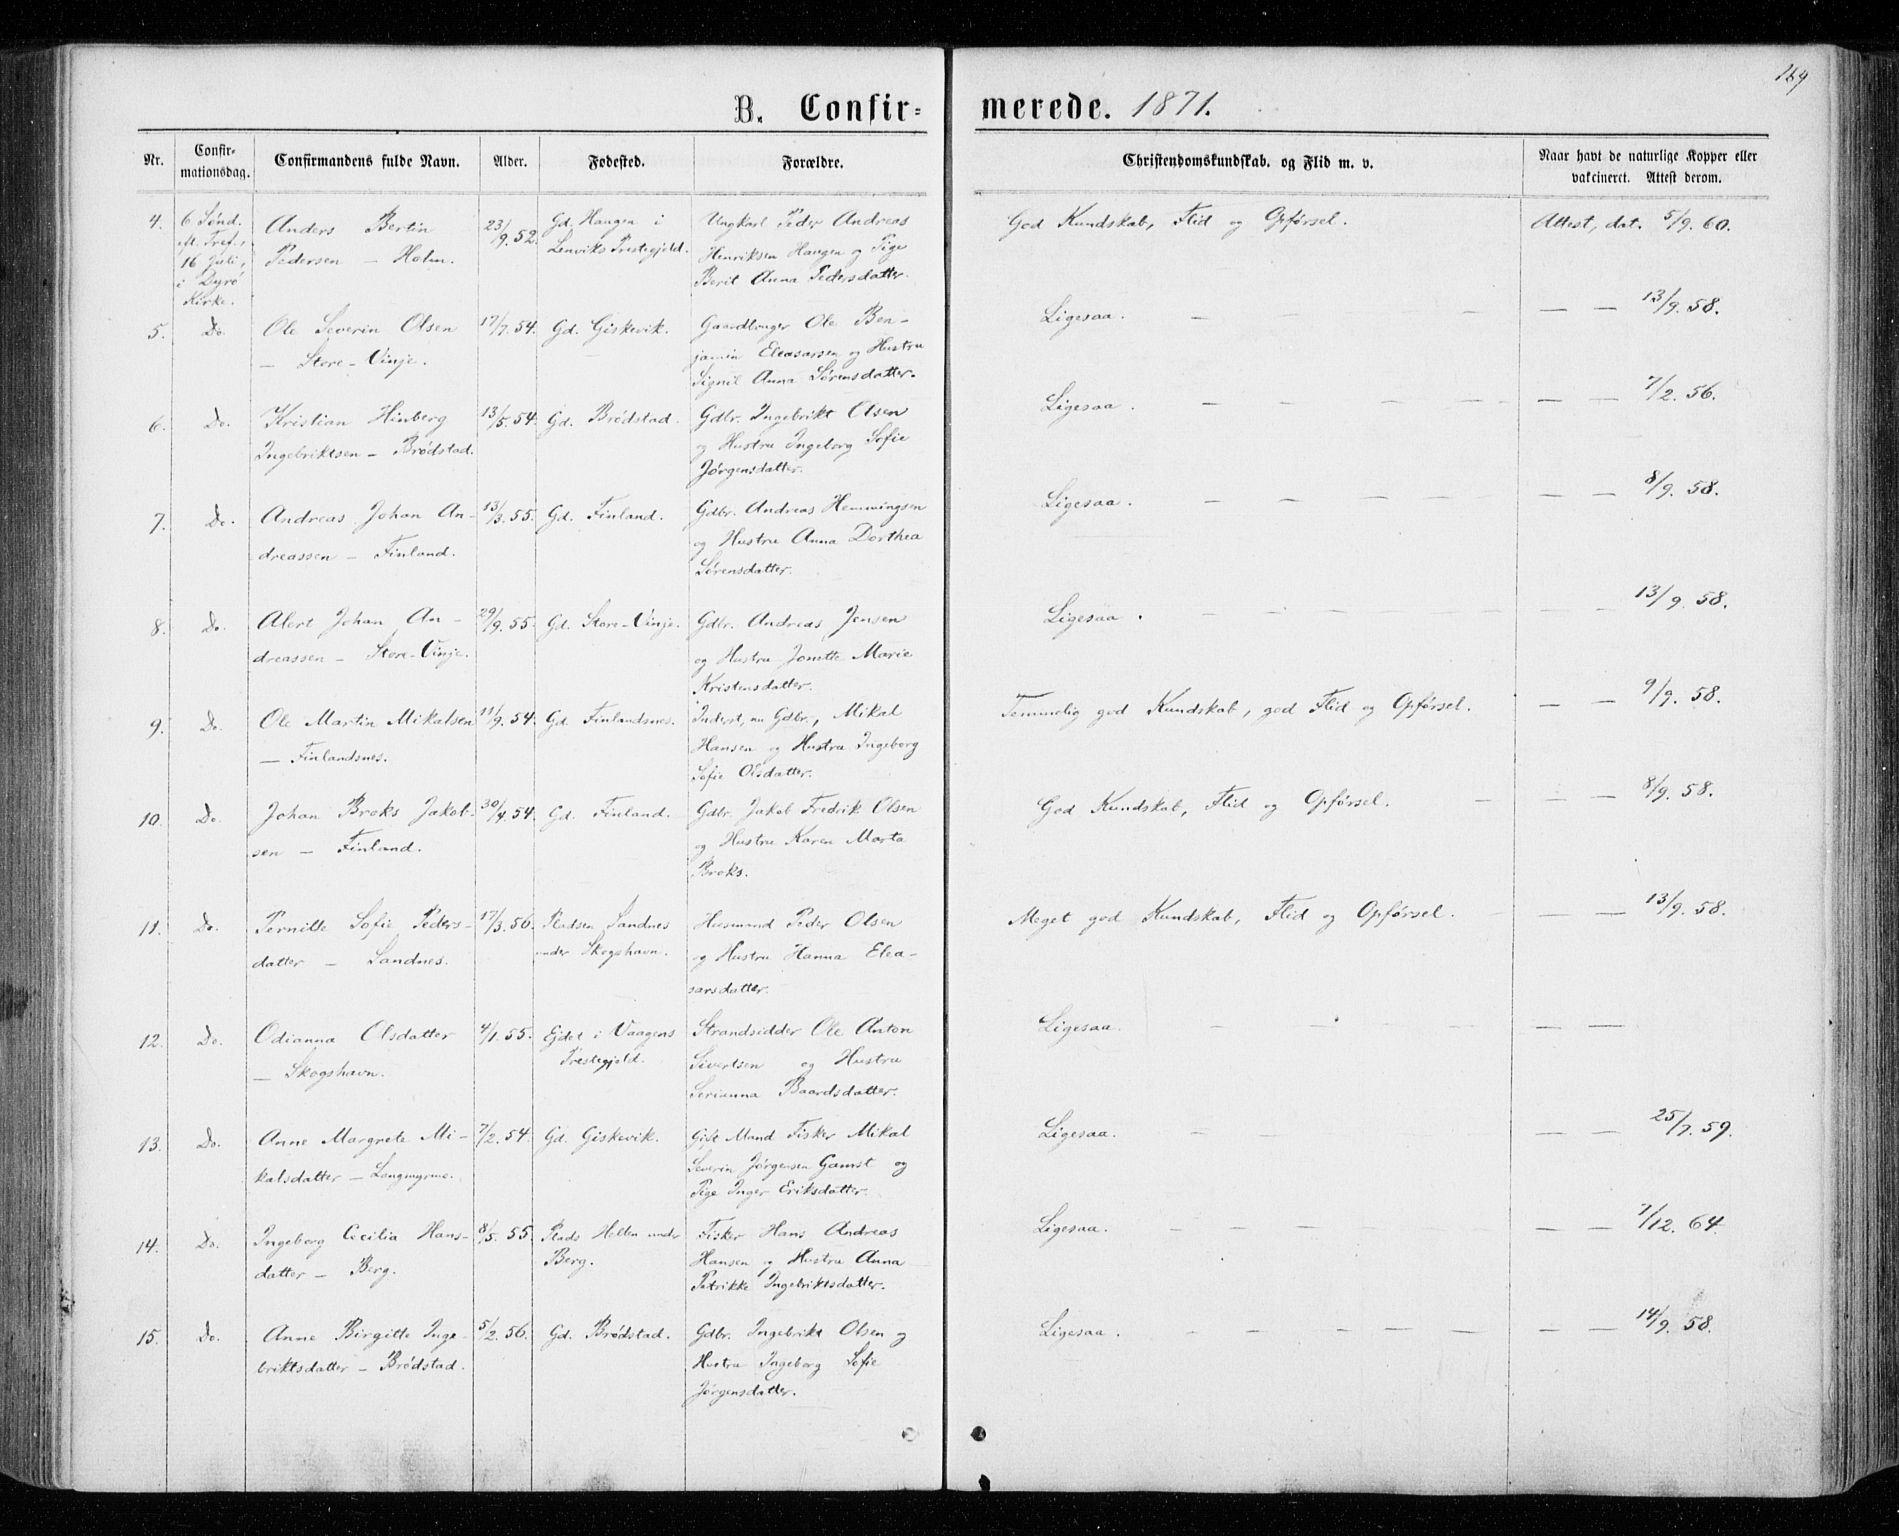 169
B. Confir-
merede. 1871.
Nr.
Confir-
mationsdag.
Confirmandens fulde Navn.
Alder.
Fødested.
Forældre.
Christendomskundskab. og Flid m. v.
Naar havt de naturlige Kopper eller
vakcineret. Attest derom.
4.
6 Sønd.
eft. Tref.,
16 Juli,
i Dyrø
Kirke.
Anders Bertin
Pedersen – Holm.
23/9. 52.
Gd. Haugen i
Lenviks Prestegjeld.
Ungkarl Peder Andreas
Henriksen Haugen og Pige
Berit Anna Pedersdatter.
God Kundskab, Flid og Opførsel.
Attest, dat. 5/9. 60.
5.
Do.
Ole Severin Olsen
– Store-Vinje.
17/7. 54.
Gd. Giskevik.
Gaardbruger Ole Ben-
jamin Eleasarsen og Hustru
Signil Anna Sørensdatter.
Ligesaa. –
– – 13/9. 58.
6.
Do.
Kristian Hinberg
Ingebriktsen – Brødstad.
13/5. 54.
Gd. Brødstad.
Gdbr. Ingebrikt Olsen
og Hustru Ingeborg Sofie
Jørgensdatter.
Ligesaa. –
– – 7/2. 56.
7.
Do.
Andreas Johan An-
dreassen – Finland.
13/3. 55.
Gd. Finland.
Gdbr. Andreas Hemmingsen
og Hustru Anna Dorthea
Sørensdatter.
Ligesaa. –
– – 8/9. 58.
8.
Do.
Alert Johan An-
dreassen – Store-Vinje.
29/9. 55.
Gd. Store-Vinje.
Gdbr. Andreas Jensen
og Hustru Jonette Marie
Kristensdatter.
Ligesaa. –
– – 13/9. 58.
9.
Do.
Ole Martin Mikalsen
– Finlandsnes.
11/9. 54.
Gd. Finlandsnes.
Inderst, nu Gdbr., Mikal
Hansen og Hustru Ingeborg
Sofie Olsdatter.
Temmelig god Kundskab, god Flid og Opførsel.
– – 9/9. 58.
10.
Do.
Johan Broks Jakob-
sen – Finland.
30/4. 54.
Gd. Finland.
Gdbr. Jakob Fredrik Olsen
og Hustru Karen Marta
Broks.
God Kundskab, Flid og Opførsel. –
– – 8/9. 58.
11.
Do.
Pernille Sofie Peders-
datter – Sandnes.
17/3. 56.
Pladsen Sandnes
under Skogshavn.
Husmand Peder Olsen
og Hustru Hanna Elea-
sarsdatter.
Meget god Kundskab, Flid og Opførsel. –
– – 13/9. 58.
12.
Do.
Odianna Olsdatter
– Skogshavn.
4/1. 55.
Ejdet i Vaagens
Prestegjeld.
Strandsidder Ole Anton
Sivertsen og Hustru
Serianna Baardsdatter.
Ligesaa. –
– –
13.
Do.
Anne Margrete Mi-
kalsdatter – Langmyrme.
7/2. 54.
Gd. Giskevik.
Gift Mand Fisker Mikal
Severin Jørgensen Gamst og
Pige Inger Eriksdatter.
Ligesaa. –
– – 25/7. 59.
14.
Do.
Ingeborg Cecilia Hans-
datter – Berg.
8/5. 55.
Plads Hellen under
Berg.
Fisker Hans Andreas
Hansen og Hustru Anna
Petrikke Ingebriktsdatter.
Ligesaa. –
– – 7/12. 64.
15.
Do.
Anne Birgitte Inge-
briktsdatter – Brødstad.
5/2. 56.
Gd. Brødstad.
Gdbr. Ingebrikt Olsen og
Hustru Ingeborg Sofie
Jørgensdatter.
Ligesaa. –
– – 14/9. 58.